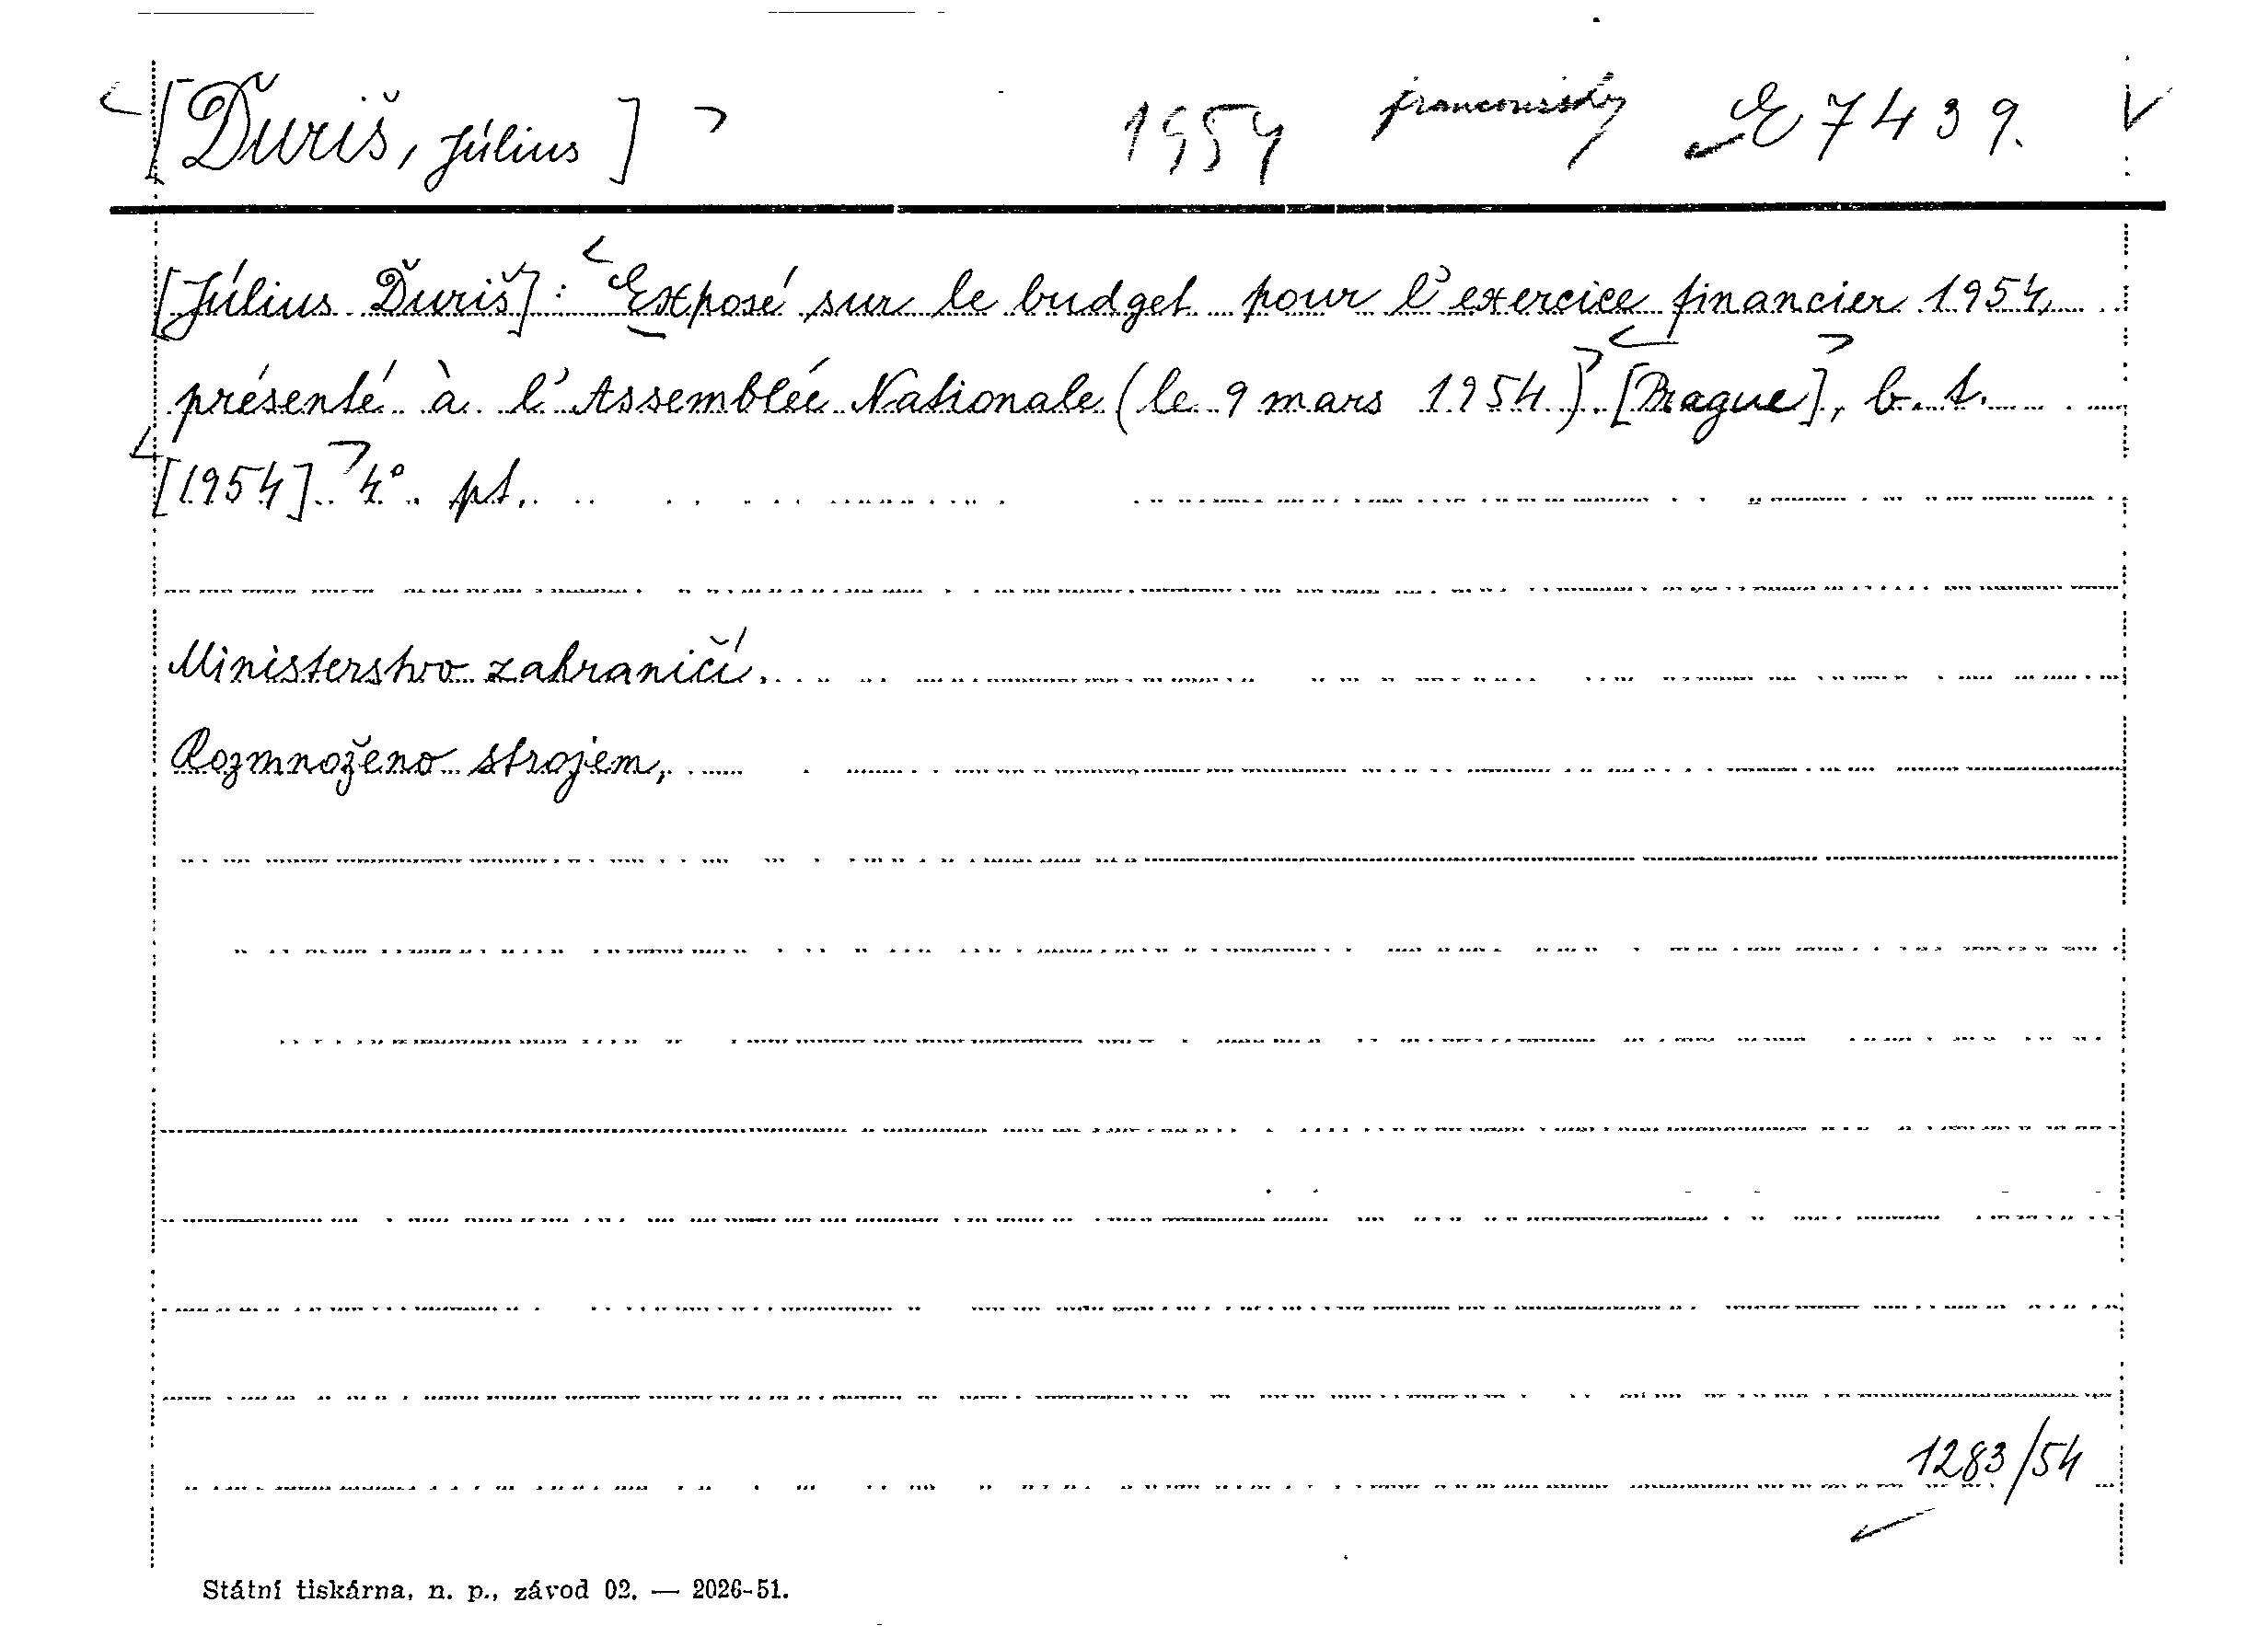 [Ďuriš, Július] 1954 francouzsky E 7439. V
[Július Ďuriš]: Exposé sur le budget pour l'exercice financier 1954,
présenté à l'Assemblée Nationale (le 9 mars 1954). [Prague], b. t.
[1954]. 4°. pt.
Ministerstvo zahraničí.
Rozmnoženo strojem,
1283/54
Státní tiskárna, n. p., závod 02. — 2026-51.